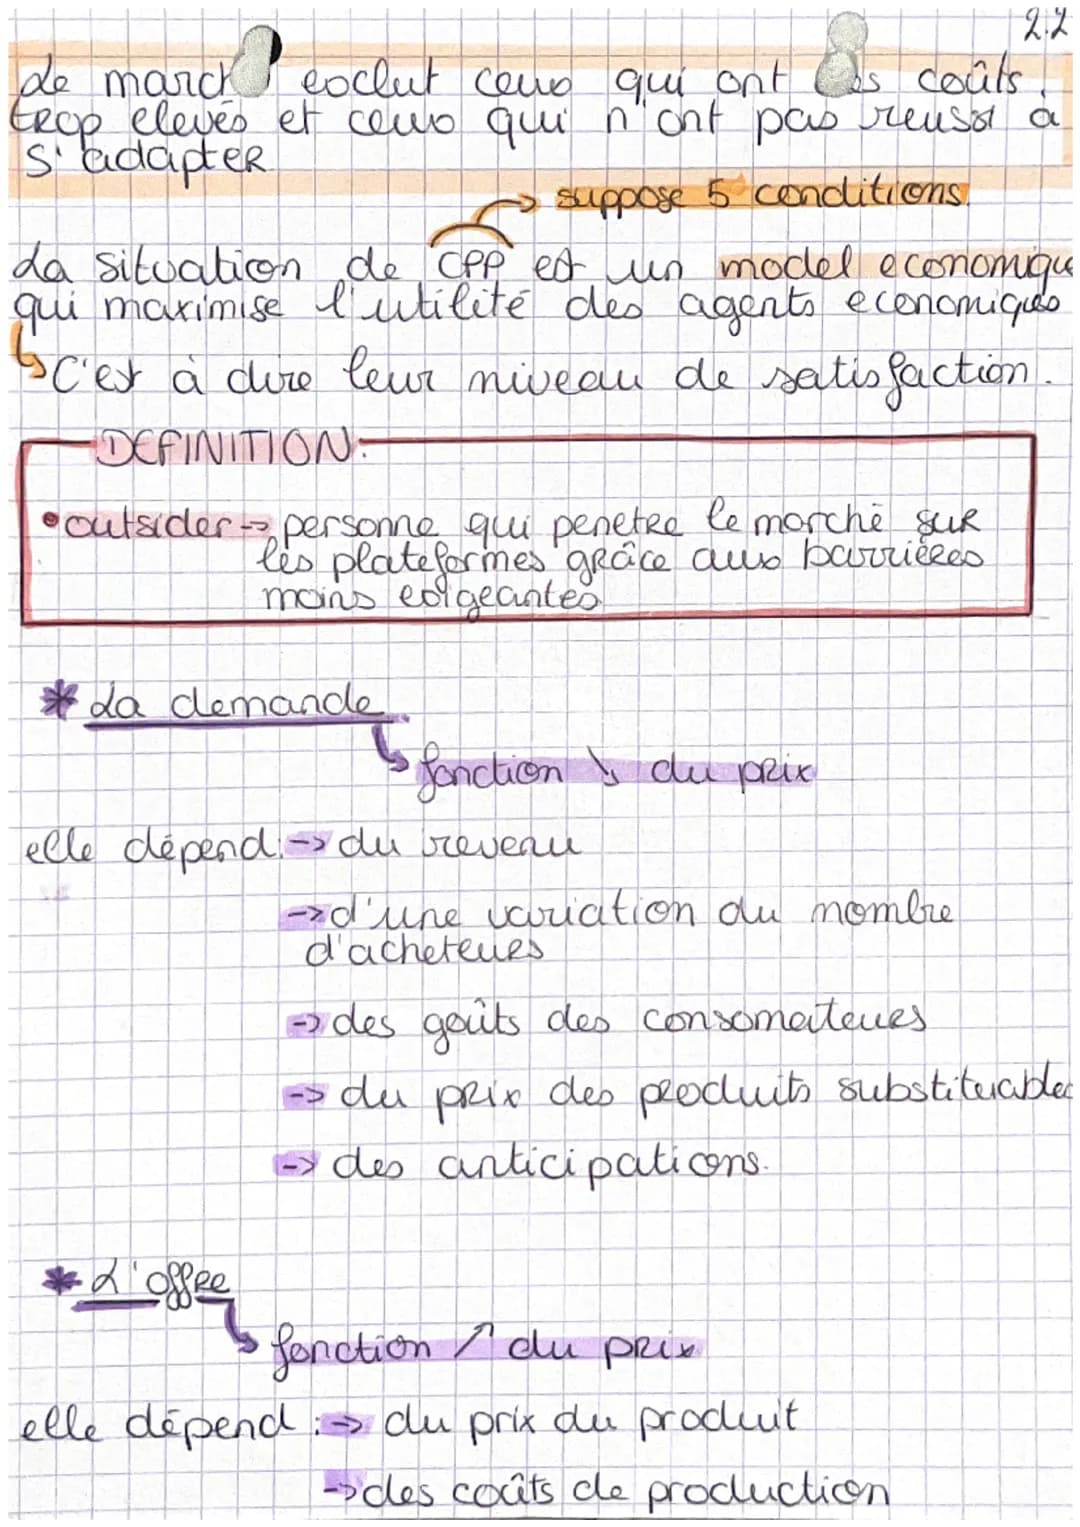 2.2
Le march exclut ceux qui ont des coûts
trop elevés et ceux qui n'ont pas reussi à
s'adapter
suppose 5 conditions.
La situation de CPP est un model economique
qui maximise l'utilité des agents economiques
C'est à dire leur niveau de satisfaction.
DEFINITION:
• outsider → personne qui penetre le marché sur
les plateformes grâce aux barrières
moins exigeantes
* La demande
fonction ↘ du prix
elle dépend: -> du revenu
-> d'une variation du nombre
d'acheteurs
-> des goûts des consomateurs
-> du prix des produits substituables
-> des anticipations.
* L'offre
fonction ↗ du prix
elle dépend : -> du prix du produit
-> des coûts de production